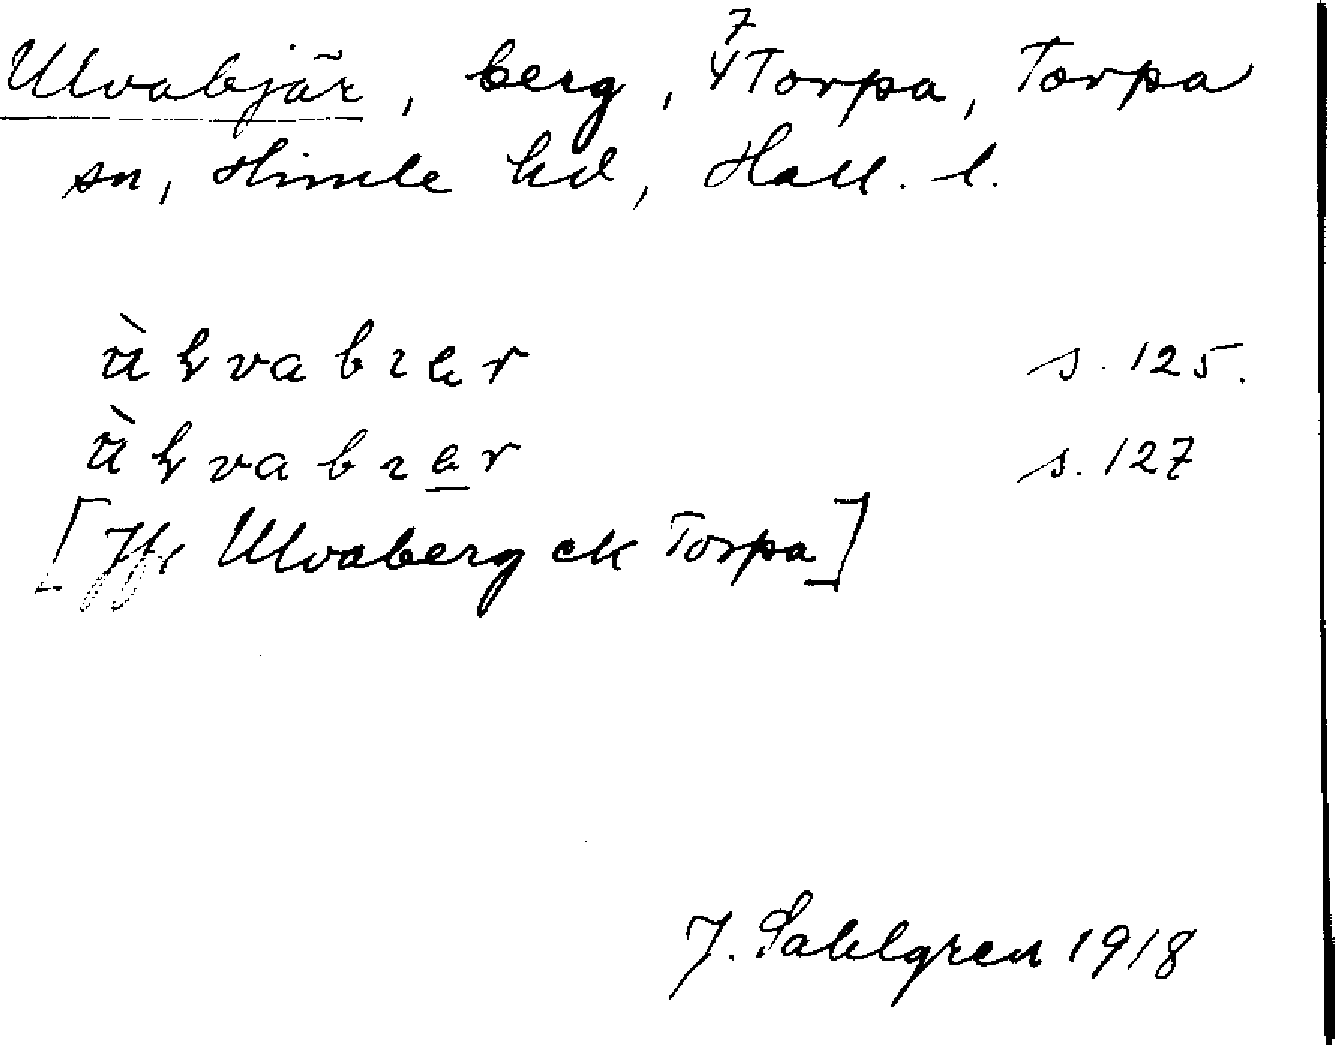 Ulvabjär, berg, 7 4 Torpa, Torpa
sn, Himle hd, Hall. l.
s. 125.
s. 127
[Jfr Ulvaberg ek Torpa]
J. Sahlgren 1918